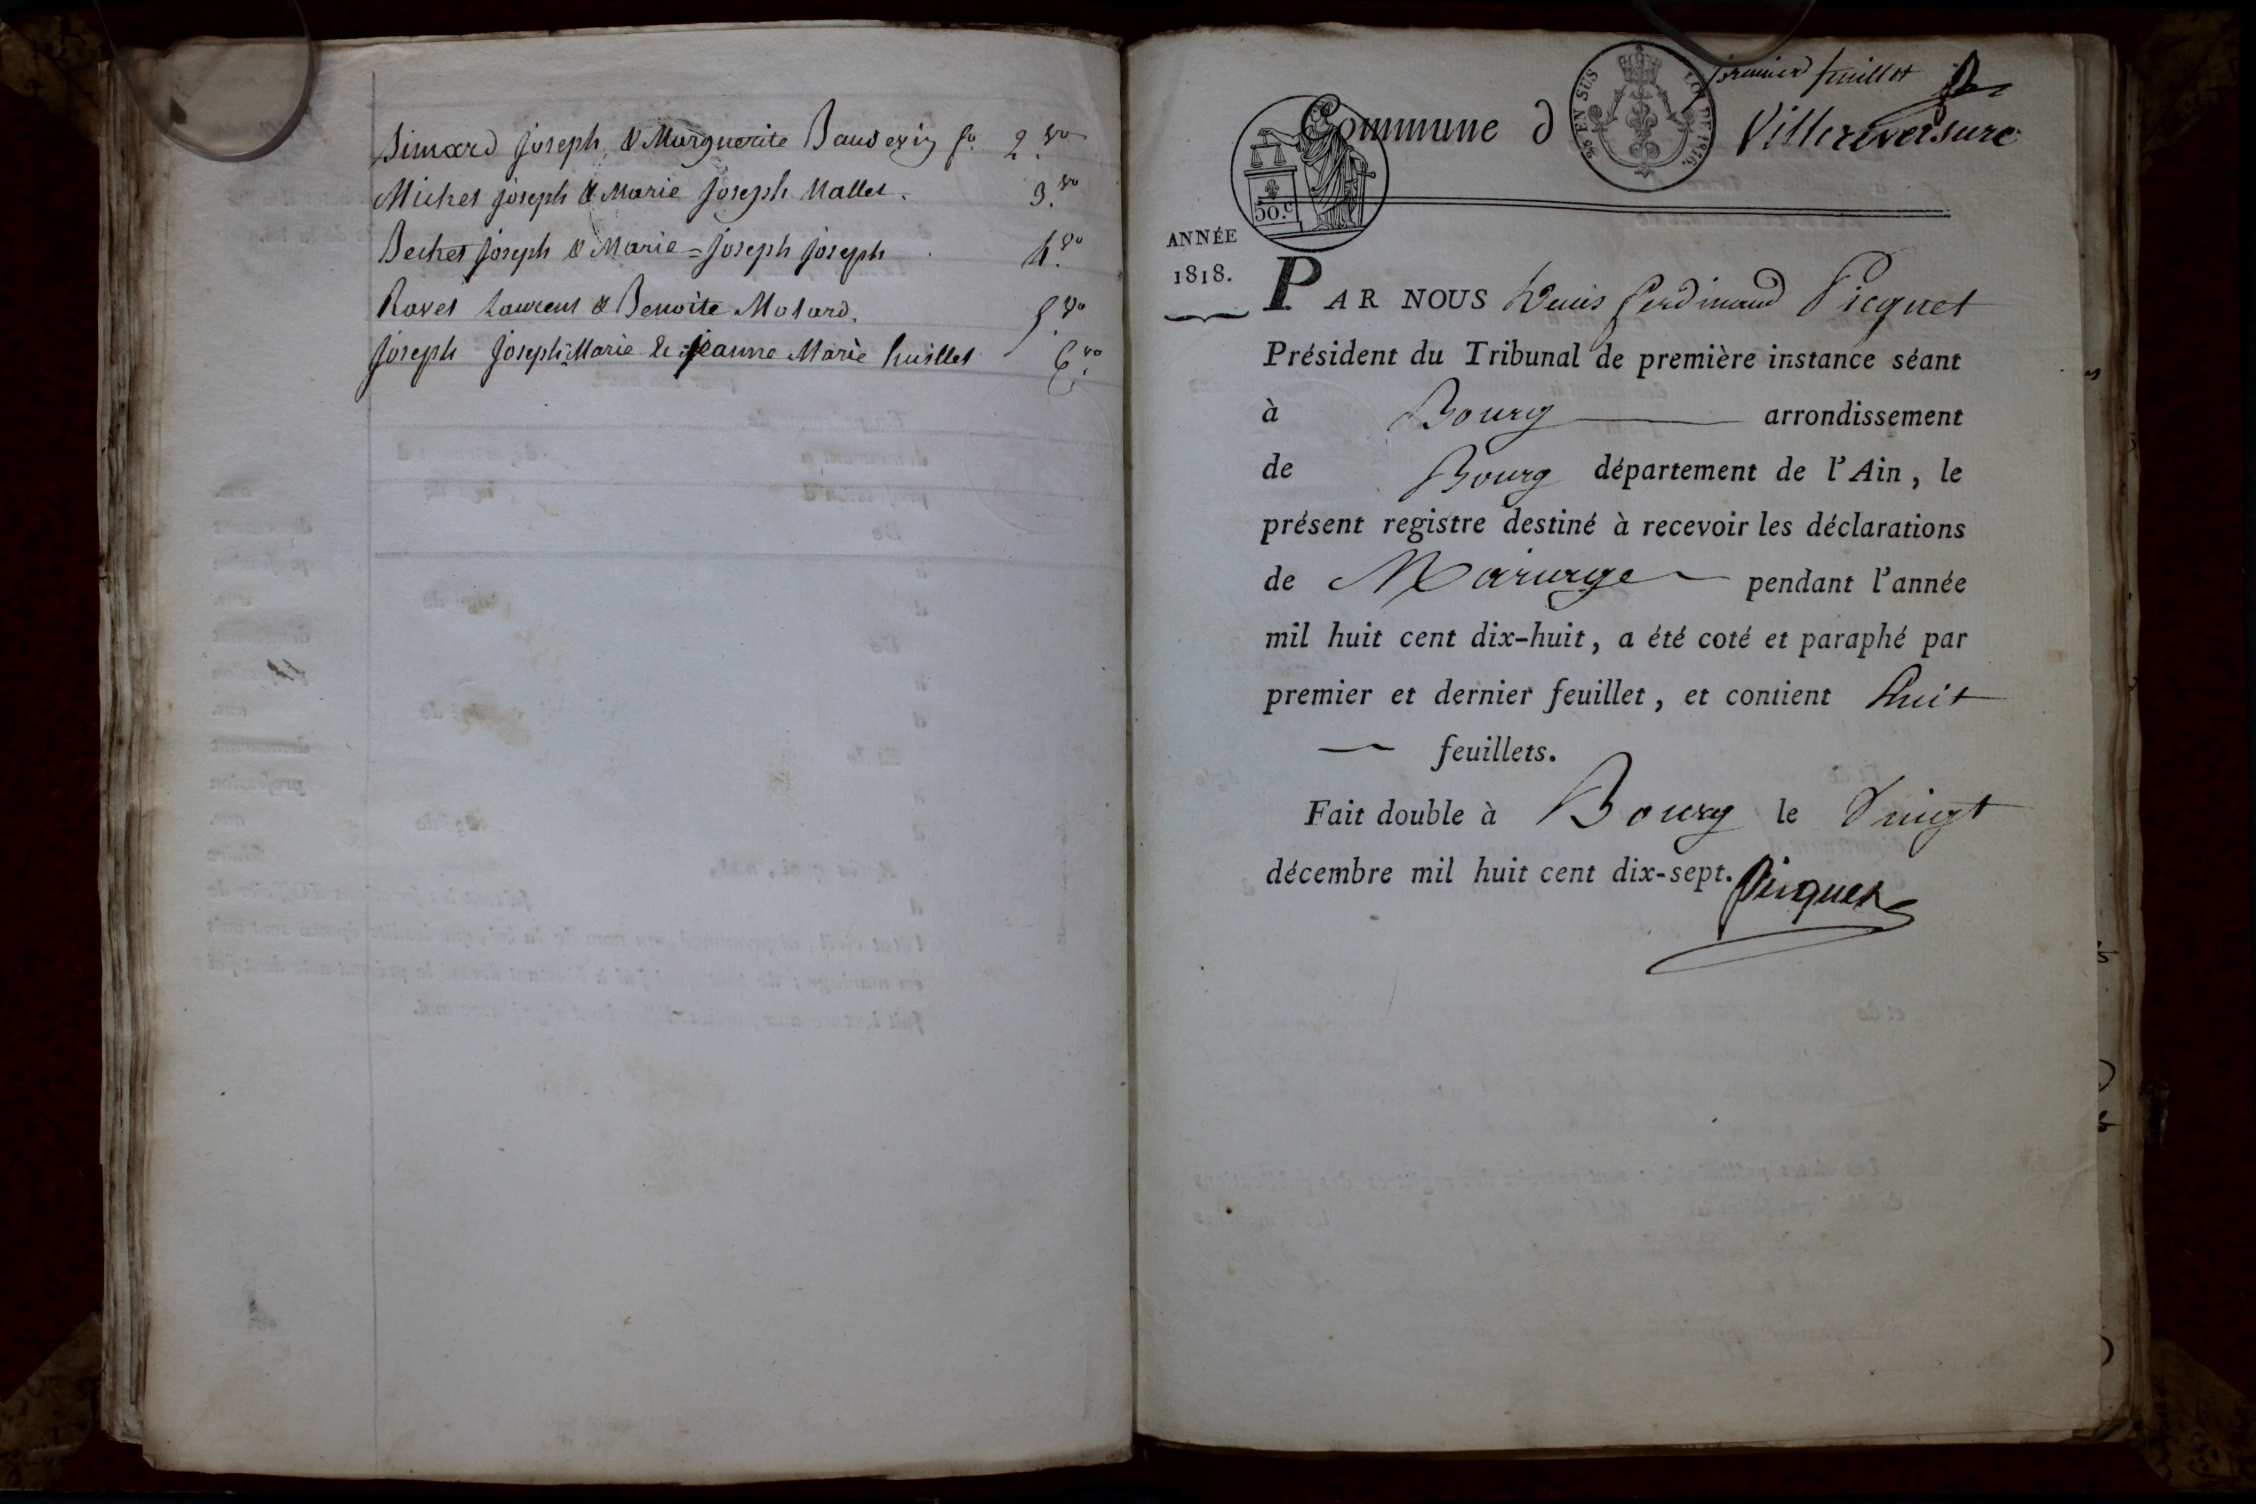 Simard Joseph & Marguerite Bauderin fo. 2.vo
Michet joseph & Marie Joseph Mallet. 3.vo
Bechet Joseph & Marie=Joseph Joseph 4.vo
Ravet Laurent & Benoite Molard. 5.vo
Joseph Joseph Marie & jeanne Marie huillet 6.vo
premier feuillet
Commune d Villereversure
25 EN SUS LOI DE 1816.
50.c
ANNÉE
1818.
PAR NOUS Denis ferdinand Picquet
Président du Tribunal de première instance séant
à Bourg arrondissement
de Bourg département de l'Ain, le
présent registre destiné à recevoir les déclarations
de Mariage pendant l'année
mil huit cent dix-huit, a été coté et paraphé par
premier et dernier feuillet, et contient huit
feuillets.
Fait double à Bourg le vingt
décembre mil huit cent dix-sept. Picquet